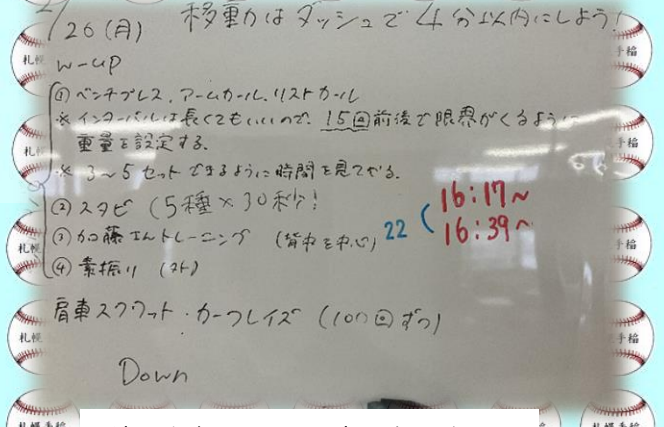 /26(月) 移動はダッシュで4分以内にしよう!
w-up
① ベンチプレス、アームカール、リストカール
※ インターバルは長くてもいいので、15回前後で限界がくるように
重量を設定する。
※ 3〜5セットできるように時間を見てやる。
② スタビ (5種×30秒!
③ 加藤さんトレーニング (背中を中心)
④ 素振り
22
16:17〜
16:39〜
肩車スクワット・カーフレイズ (100回ずつ)
Down
札幌
手稲
札幌
手稲
札幌
手稲
札幌
手稲
札幌手稲
札幌手稲